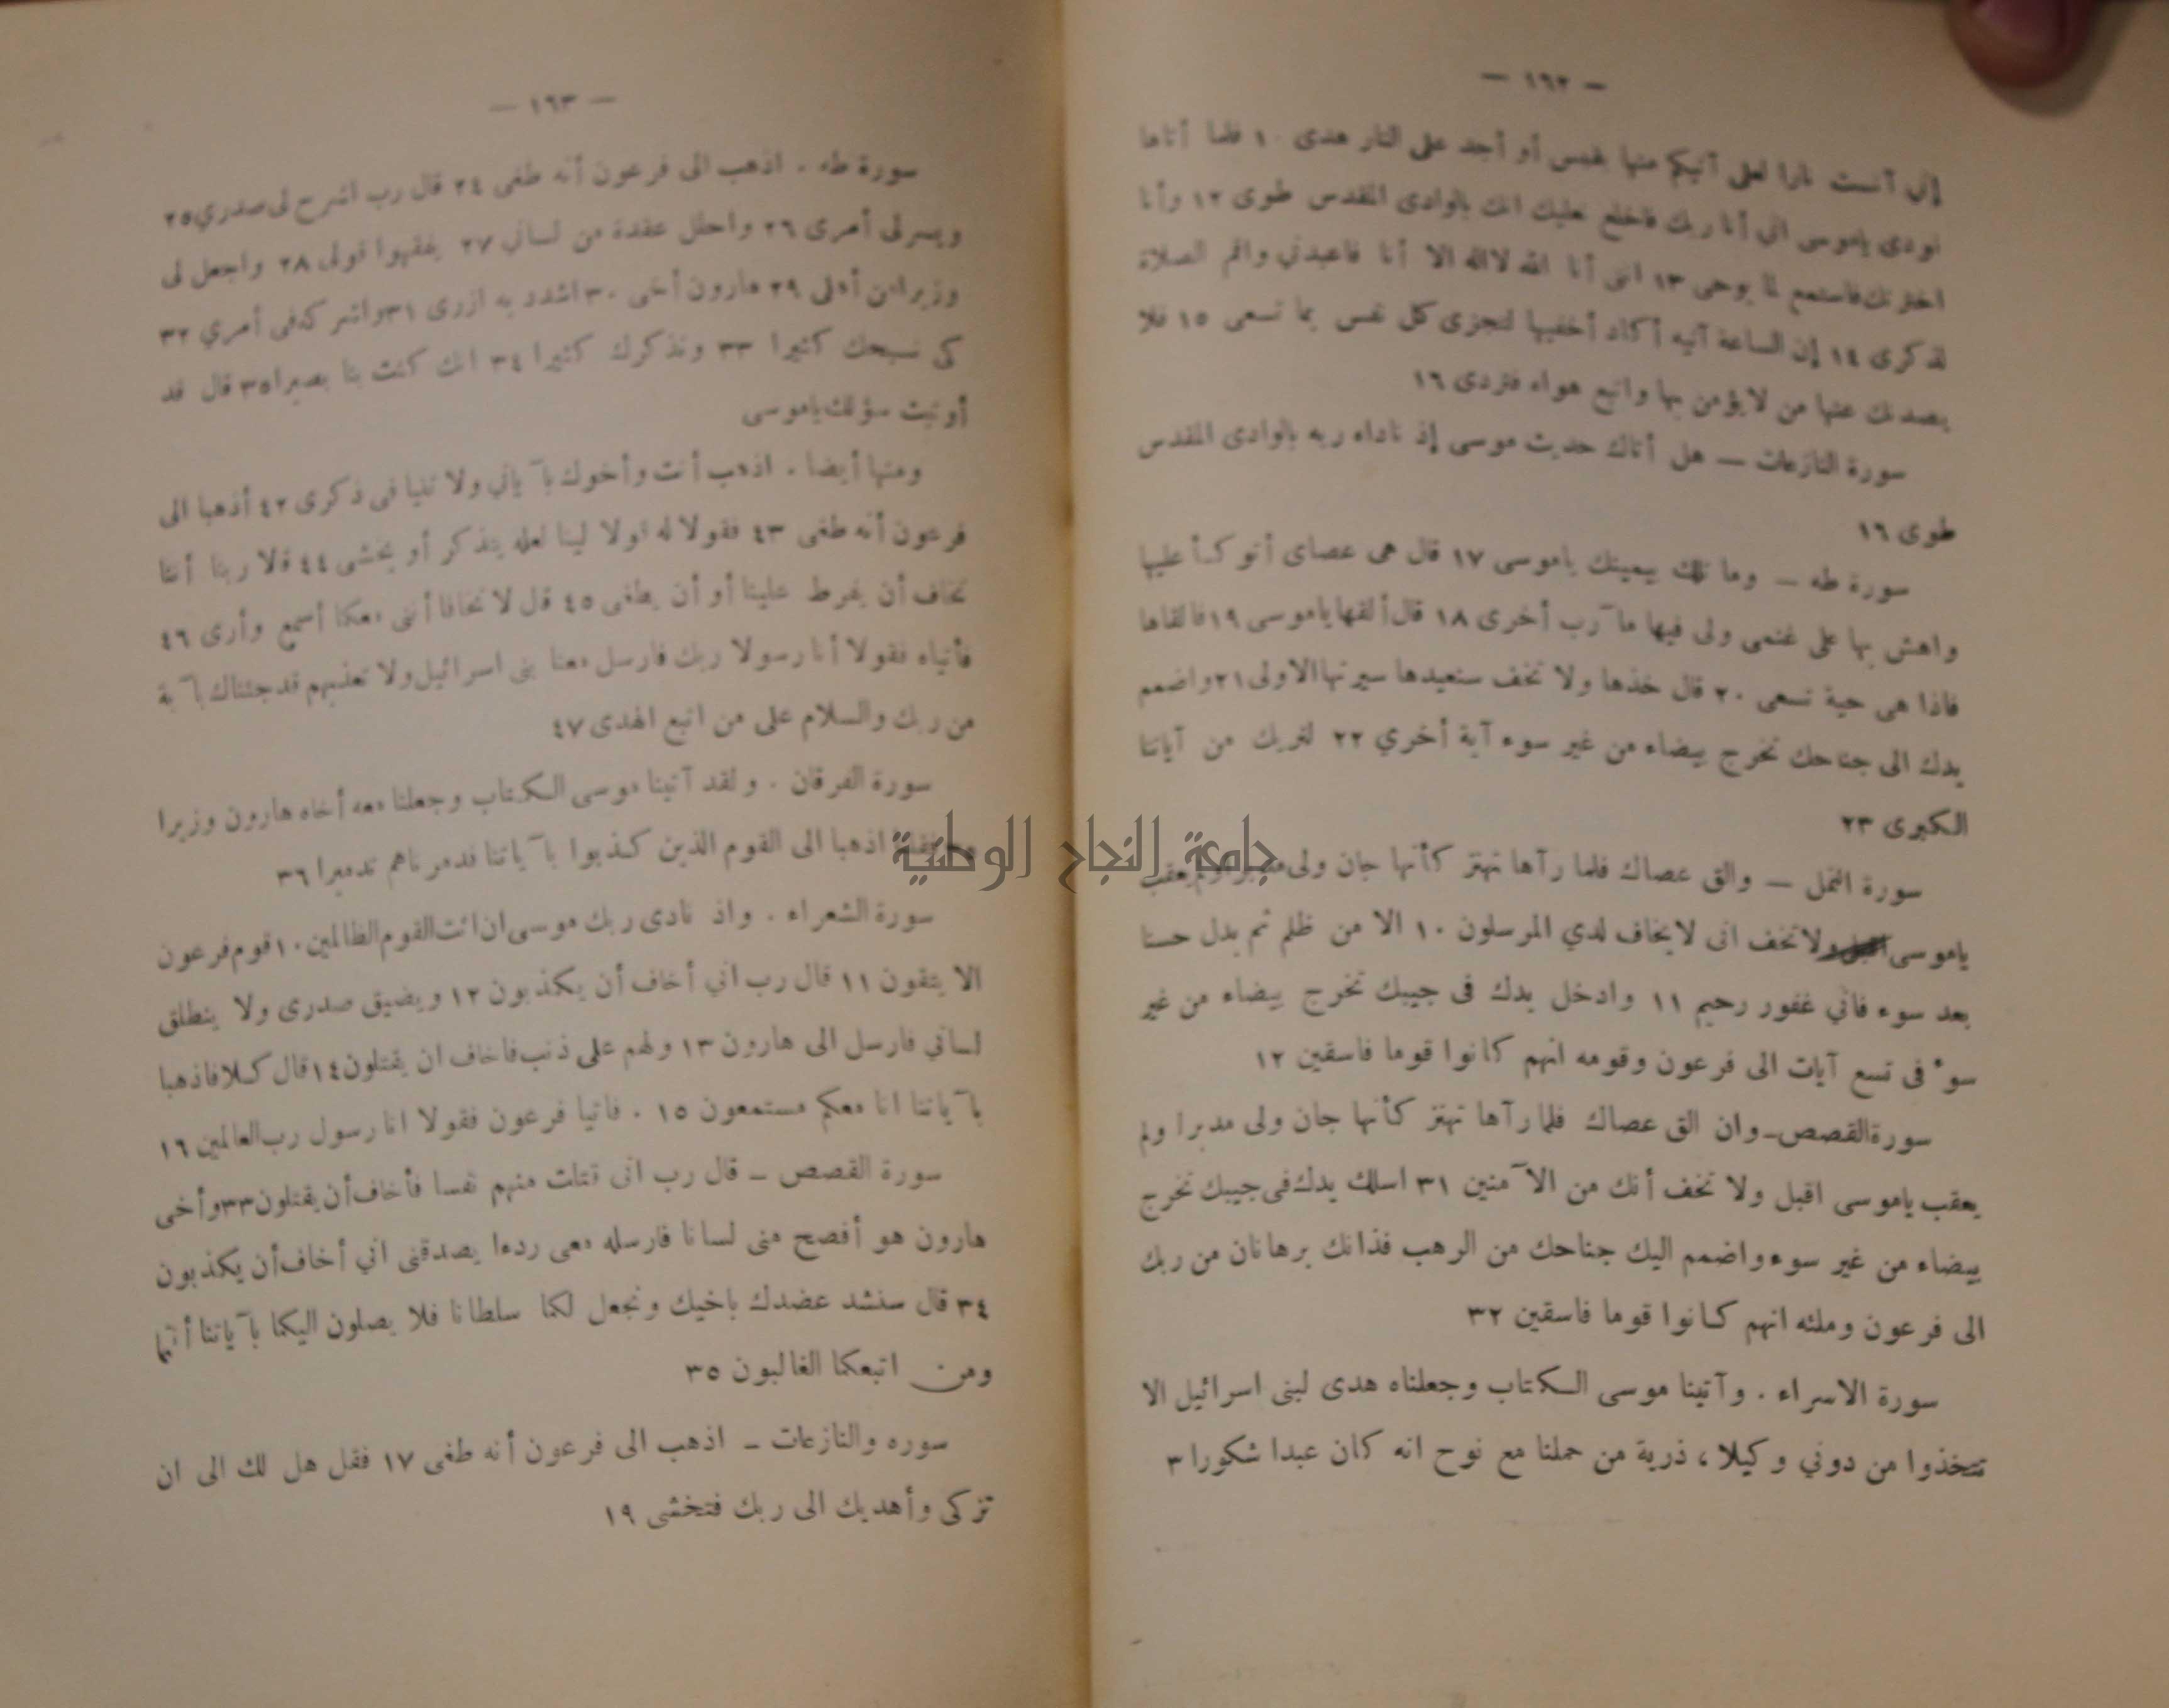 — ١٦٢ —
إني آنست نارا لعلى آتيكم منها بقبس أو أجد على النار هدى ١٠ فلما أتاها
نودى ياموسى اني أنا ربك فاخلع نعليك انك بالوادى المقدس طوى ١٢ وأنا
اخترتك فاستمع لما يوحى ١٣ انني أنا الله لااله الا أنا فاعبدني واقم الصلاة
لذكرى ١٤ إن الساعة آتيه أكاد أخفيها لتجزى كل نفس بما تسعى ١٥ فلا
يصدنك عنها من لايؤمن بها واتبع هواه فتردى ١٦
سورة النازعات — هل أتاك حديث موسى إذ ناداه ربه بالوادى المقدس
طوى ١٦
سورة طه — وما تلك بيمينك ياموسى ١٧ قال هى عصاى أتوكأ عليها
واهش بها على غنمى ولى فيها مآرب أخرى ١٨ قال ألقها ياموسى ١٩ فالقاها
فاذا هى حية تسعى ٢٠ قال خذها ولا تخف سنعيدها سيرتها الاولى ٢١ واضمم
يدك الى جناحك تخرج بيضاء من غير سوء آية أخري ٢٢ لنريك من آياتنا
الكبرى ٢٣
سورة النمل — والق عصاك فلما رآها تهتز كأنها جان ولى مدبرا ولم يعقب
ياموسى ولا تخف انى لايخاف لدي المرسلون ١٠ الا من ظلم ثم بدل حسنا
بعد سوء فاني غفور رحيم ١١ وادخل يدك فى جيبك تخرج بيضاء من غير
سوء فى تسع آيات الى فرعون وقومه انهم كانوا قوما فاسقين ١٢
سورة القصص — وان الق عصاك فلما رآها تهتز كأنها جان ولى مدبرا ولم
يعقب ياموسى اقبل ولا تخف أنك من الآمنين ٣١ اسلك يدك فى جيبك تخرج
بيضاء من غير سوء واضمم اليك جناحك من الرهب فذانك برهانان من ربك
الى فرعون وملئه انهم كانوا قوما فاسقين ٣٢
سورة الاسراء . وآتينا موسى الكتاب وجعلناه هدى لبنى اسرائيل الا
تتخذوا من دوني وكيلا ، ذرية من حملنا مع نوح انه كان عبدا شكورا ٣
— ١٦٣ —
سورة طه . اذهب الى فرعون أنه طغى ٢٤ قال رب اشرح لى صدري ٢٥
ويسرلى أمرى ٢٦ واحلل عقدة من لساني ٢٧ يفقهوا قولى ٢٨ واجعل لى
وزيرا من أهلى ٢٩ هارون أخى ٣٠ اشدد به ازرى ٣١ واشركه فى أمري ٣٢
كى نسبحك كثيرا ٣٣ ونذكرك كثيرا ٣٤ انك كنت بنا بصيرا ٣٥ قال قد
أوتيت سؤلك ياموسى
ومنها أيضا . اذهب أنت وأخوك بآياتي ولا تنيا فى ذكرى ٤٢ أذهبا الى
فرعون أنه طغى ٤٣ فقولا له قولا لينا لعله يتذكر أو يخشى ٤٤ قلا ربنا أننا
نخاف أن يفرط علينا أو أن يطغى ٤٥ قل لا تخافا أننى معكما أسمع وأرى ٤٦
فأتياه فقولا أنا رسولا ربك فارسل معنا بنى اسرائيل ولا تعذبهم قد جئناك بآية
من ربك والسلام على من اتبع الهدى ٤٧
سورة الفرقان . ولقد آتينا موسى الكتاب وجعلنا معه أخاه هارون وزيرا
٣٥ فقلنا اذهبا الى القوم الذين كذبوا بآياتنا فدمرناهم تدميرا ٣٦
سورة الشعراء . واذ نادى ربك موسى ان ائت القوم الظالمين ١٠ قوم فرعون
الا يتقون ١١ قال رب اني أخاف أن يكذبون ١٢ ويضيق صدرى ولا ينطلق
لساني فارسل الى هارون ١٣ ولهم على ذنب فاخاف ان يقتلون ١٤ قال كلا فاذهبا
بآياتنا انا معكم مستمعون ١٥ . فاتيا فرعون فقولا انا رسول رب العالمين ١٦
سورة القصص — قال رب انى قتلت منهم نفسا فأخاف أن يقتلون ٣٣ وأخى
هارون هو أفصح منى لسانا فارسله معى ردءا يصدقنى اني أخاف أن يكذبون
٣٤ قال سنشد عضدك باخيك ونجعل لكما سلطانا فلا يصلون اليكما بآياتنا أنتما
ومن اتبعكما الغالبون ٣٥
سوره والنازعات — اذهب الى فرعون أنه طغى ١٧ فقل هل لك الى ان
تزكى وأهديك الى ربك فتخشى ١٩
جامعة النجاح الوطنية